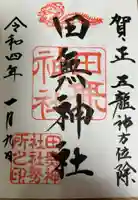 賀正 五龍神方位除
田無神社
田無
神社
田無神
社社務
所之印
令和四年 一月九日